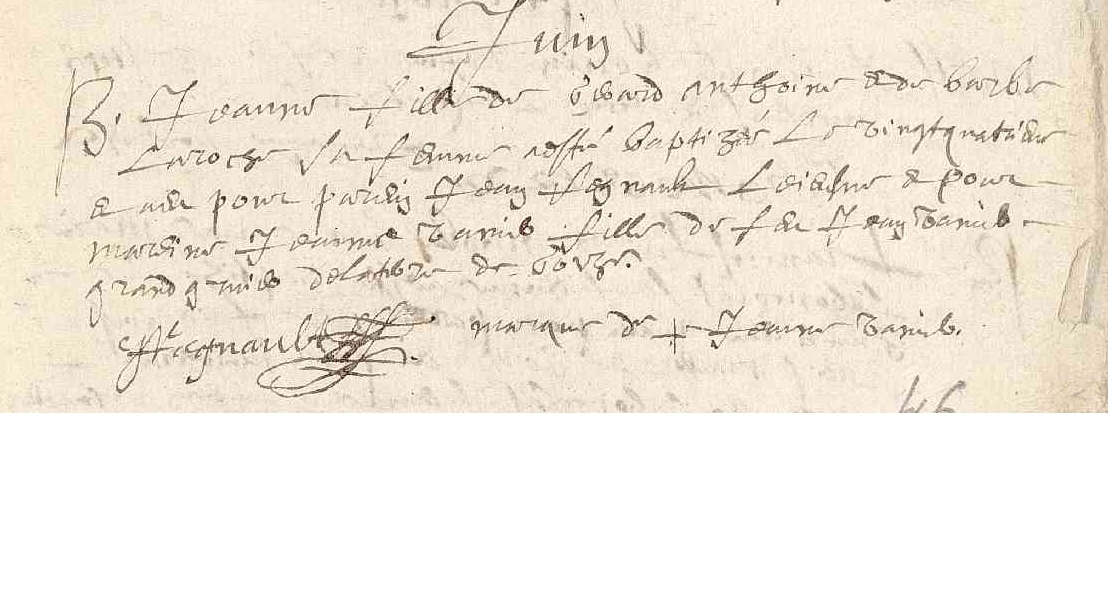 Juin
B. Jeanne fille de Evrard Anthoine & de barbe
Laroche sa femme a esté baptizée Le vingtquatrieme
& a eu pour parein Jean Regnault Le jeusne & pour
mareine Jeanne vanib fille de feu Jean vanib
grand de de Gorze.
Regnault marque de + Jeanne vanib.